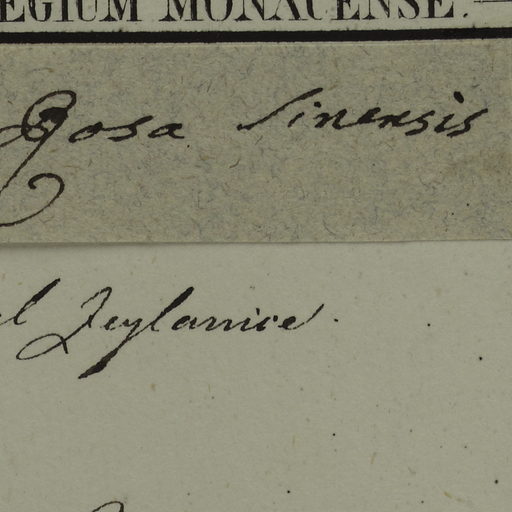 EGIUM MONACENSE.—
Rosa Sinensis
el Zeylanice.